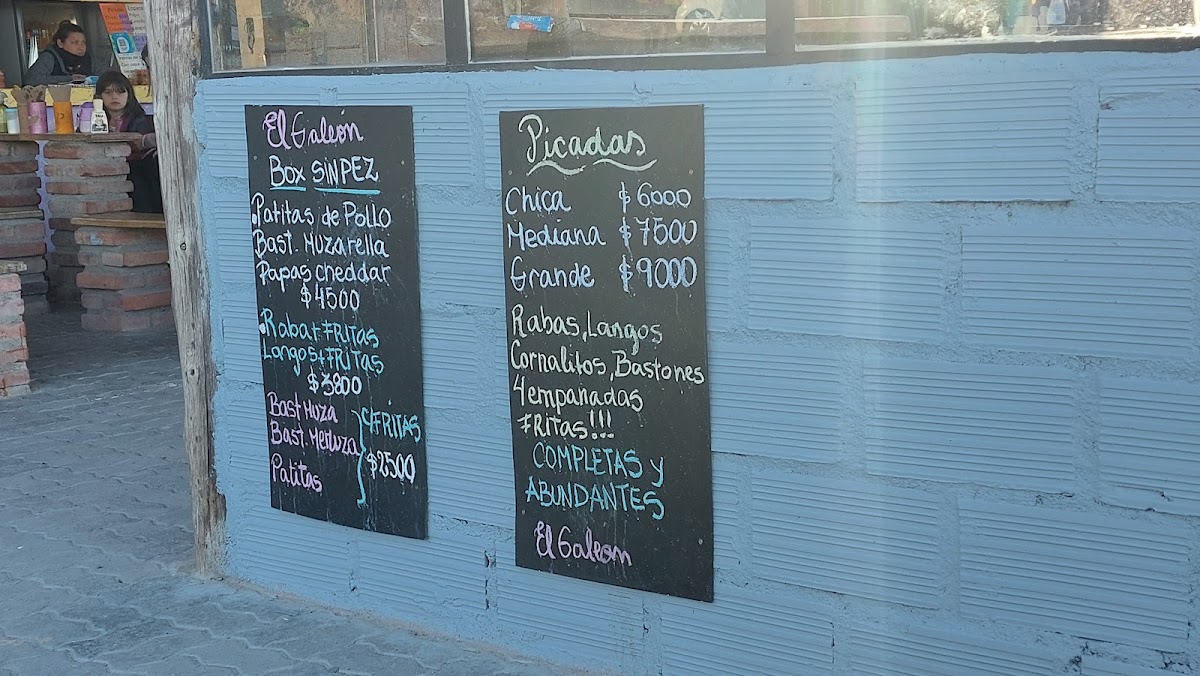 El Galeón
BOX SIN PEZ
.Patitas de Pollo
Bast. Muzarella
Papas cheddar
$4500
.Rabas+FRITAS
Langos+FRITAS
$3800
Bast Muza
Bast. Merluza
Patitas
C/FRITAS
$2500
Picadas
Chica $6000
Mediana $7500
Grande $9000
Rabas, Langos
Cornalitos, Bastones
4 empanadas
FRITAS!!!
COMPLETAS y
ABUNDANTES
El Galeón